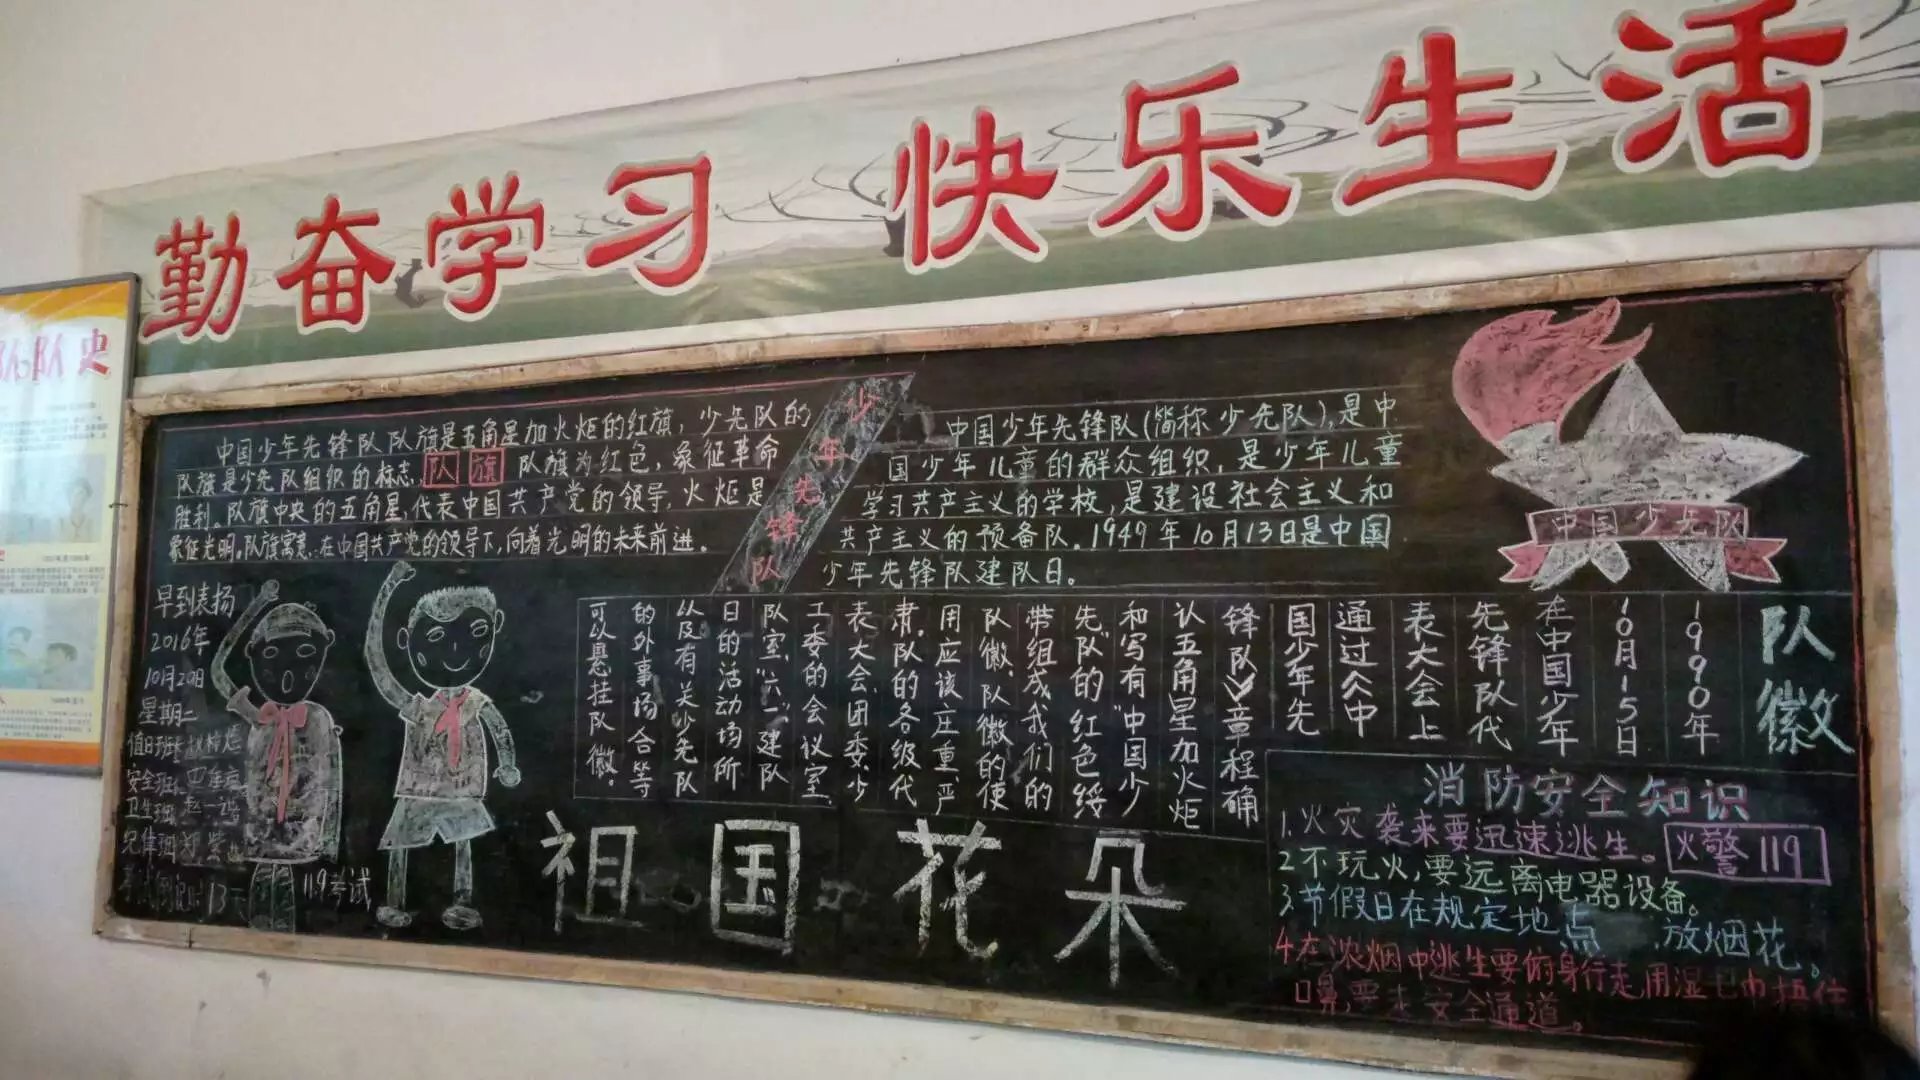 勤奋学习 快乐生活
队史
中国少年先锋队队旗是五角星加火炬的红旗,少先队的
队旗是少先队组织的标志. 队旗 队旗为红色,象征革命
胜利。队旗中央的五角星,代表中国共产党的领导,火炬是
象征光明。队旗寓意:在中国共产党的领导下,向着光明的未来前进。
少年先锋队
中国少年先锋队(简称少先队),是中
国少年儿童的群众组织,是少年儿童
学习共产主义的学校,是建设社会主义和
共产主义的预备队。1949年10月13日是中国
少年先锋队建队日。
中国少先队
队徽
1990年
10月15日
在中国少年
先锋队代
表大会上
通过《中
国少年先
锋队章程确
认五角星加火炬
和写有"中国少
先队"的红色绶
带组成我们的
队徽.队徽的使
用应该庄重.严
肃.队的各级代
表大会.团委.少
工委的会议室.
队室."六一".建队
日的活动场所
以及有关少先队
的外事场合等
可以悬挂队徽。
早到表扬
2016年
10月20日
星期二
值日班长
安全班
卫生班 赵一
纪律班
13天
119考试
祖国花朵
消防安全知识
1.火灾袭来要迅速逃生。 火警119
2不玩火,要远离电器设备。
3节假日在规定地点 放烟花。
4在浓烟中逃生要俯身行走,用湿毛巾捂住
口鼻,要走安全通道。